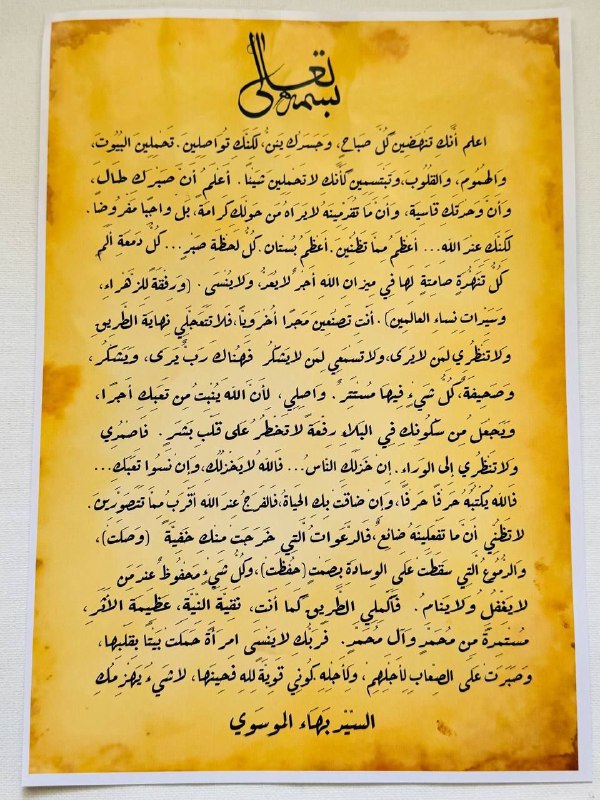 بسمه تعالى
اعلم أَنَّكِ تنهَضين كُلَّ صباحٍ، وجسدكِ يَئِنُّ، لكنَّكِ تُواصِلين. تحمِلين البُيُوتَ،
والهمُوم، والقُلُوبَ، وتبتسمين كأنَّكِ لا تحمِلين شيئًا. أعلَمُ أنَّ صبركِ طال،
وأنَّ وحدتكِ قاسية، وأنَّ ما تقدِّمينهُ لا يراهُ من حولكِ كرامة، بل واجبًا مفروضًا.
لكنَّكِ عند الله... أعظَمُ ممَّا تظُنِّين. أعظَمُ بُستان. كُلُّ لحظَةِ صبْرٍ... كُلُّ دمعةِ ألَمٍ
كُلُّ تنهُّدةٍ صامتةٍ لها في ميزانِ الله أجرٌ لا يُعدُّ، ولا يُنسى. (ورفقةً للزَّهراءِ،
وسيِّداتِ نساء العالمين). أنتِ تصنعين مجدًا أُخرويًّا، فلا تتعجَّلي نهايةَ الطَّريقِ
ولا تنظُري لمن لا يرى، ولا تسمعي لمن لا يشكُر فهُناك ربٌّ يرى، ويشكُر،
وصحيفةٌ، كُلُّ شيءٍ فيها مُستترٌ. واصِلي، لأنَّ الله يُنبتُ من تعبكِ أجرًا،
ويجعلُ من سكُونكِ في البلاءِ رفعةً لا تخطُرُ على قلبِ بشرٍ. فاصمُدي
ولا تنظُري إلى الوراء. إن خذلكِ الناسُ... فالله لا يخذُلُكِ، وإن نسُوا تعبكِ...
فالله يكتُبُه حرفًا حرفًا، وإن ضاقت بكِ الحياةُ، فالفرجُ عند الله أقربُ ممَّا تتصوَّرين.
لا تظُنِّي أنَّ ما تفعلينهُ ضائعٌ، فالدَّعواتُ الَّتي خرجت منكِ خفيَّةً (وصلت)،
والدُّموعُ الَّتي سقطت على الوسادةِ بصمتٍ (حُفظت)، وكُلُّ شيءٍ محفُوظٌ عند من
لا يغفُلُ ولا ينامُ. فأكملي الطَّريق كما أنتِ، نقيَّةَ النِّيَّة، عظيمةَ الأثر،
مُستمدَّةً من مُحمَّدٍ وآلِ مُحمَّدٍ. فربُّكِ لا ينسى امرأةً حملت بيتًا بقلبها،
وصبرت على الصِّعابِ لأجلِهِم، ولأجلِهِ. كُوني قويَّةً للهِ فحينها، لا شيءَ يهزِمُكِ
السيّد بهاء الموسوي